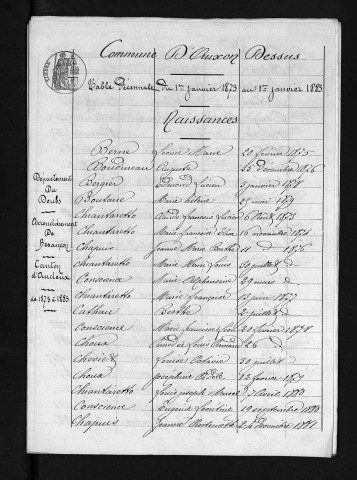 Commune D'Auxon Dessus
Table Décennale du 1er Janvier 1873 au 1er Janvier 1883
Naissances
Département
Du
Doubs
Arrondissement
De
Besançon
Canton
d'Audeux
de 1873 à 1883
Berne Marie 20 février 1875
Auguste 25 décembre 1876
Bergier Edmond Lucien 5 janvier 1878
Boutans Marie 25 mai 1879
Chiantaretto Claude François Lucien 6 1873
Chiantaretto Marie 16 novembre 1874
Chapuis Jeanne Marie Berthe 11 d° 1876
Chiantaretto Marie Louis 30 juillet d°
Conscience Marie Alphonsine 29 mars d°
Chiantaretto Marie Françoise 13 juin 1877
Cathau Berthe 2 juillet d°
Conscience Marie 20 février 1878
Choux Claude Louis Armand 26 d°
Louise Octavie 20 juillet d°
Choux Joséphine 12 février 1879
Chiantaretto Louis Joseph Marcel 7 Avril 1880
Conscience Eugène 19 septembre 1880
Chapuis Jeanne 24 décembre 1881